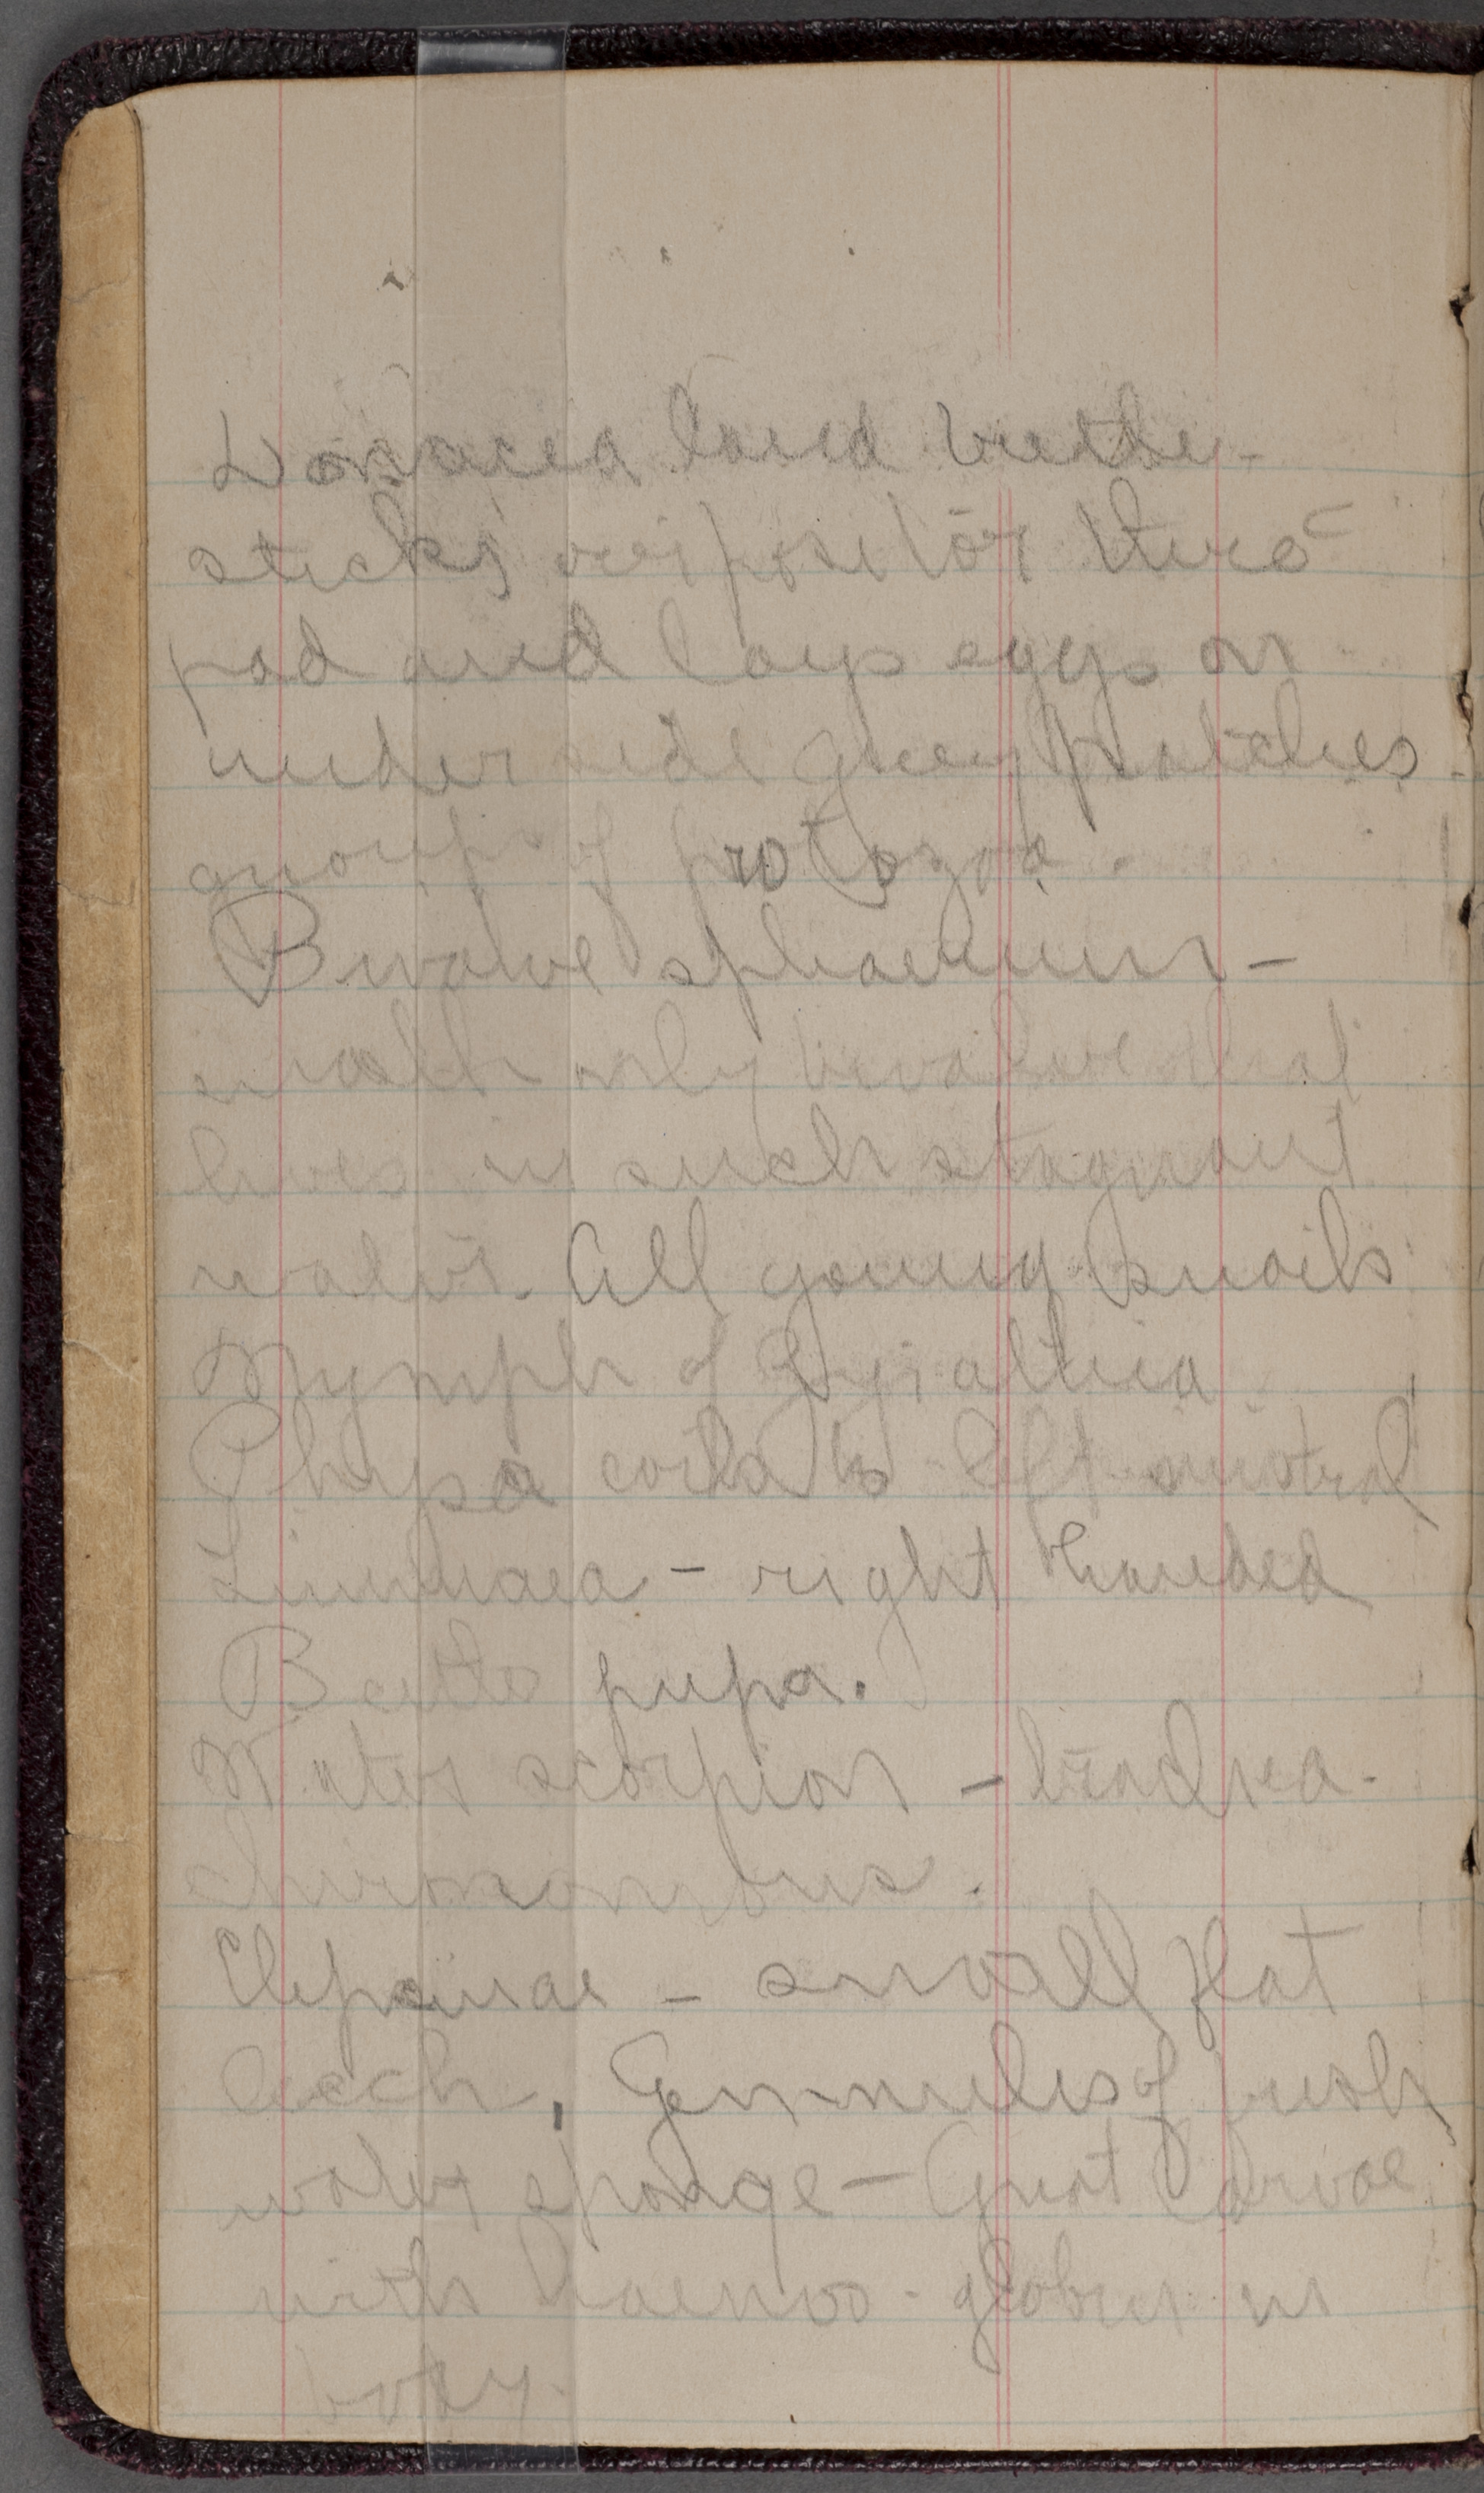 Donacea land beetle -
sticks ovipositor thro
pad and lays eggs on
under side Grey patches
groups of protozoa.
Bivalve sphaerium -
small only bivalve that
lives in such stagnant
water. All young snails
Nymph of
Physa coils to left sinistral
Limnaea - right handed
Beetle pupa.
Water scorpion -
chironomous.
Clepsinae - small flat
leech, Gemmules of fresh
water sponge - Gnat larvae
with haemo-globin in
body.